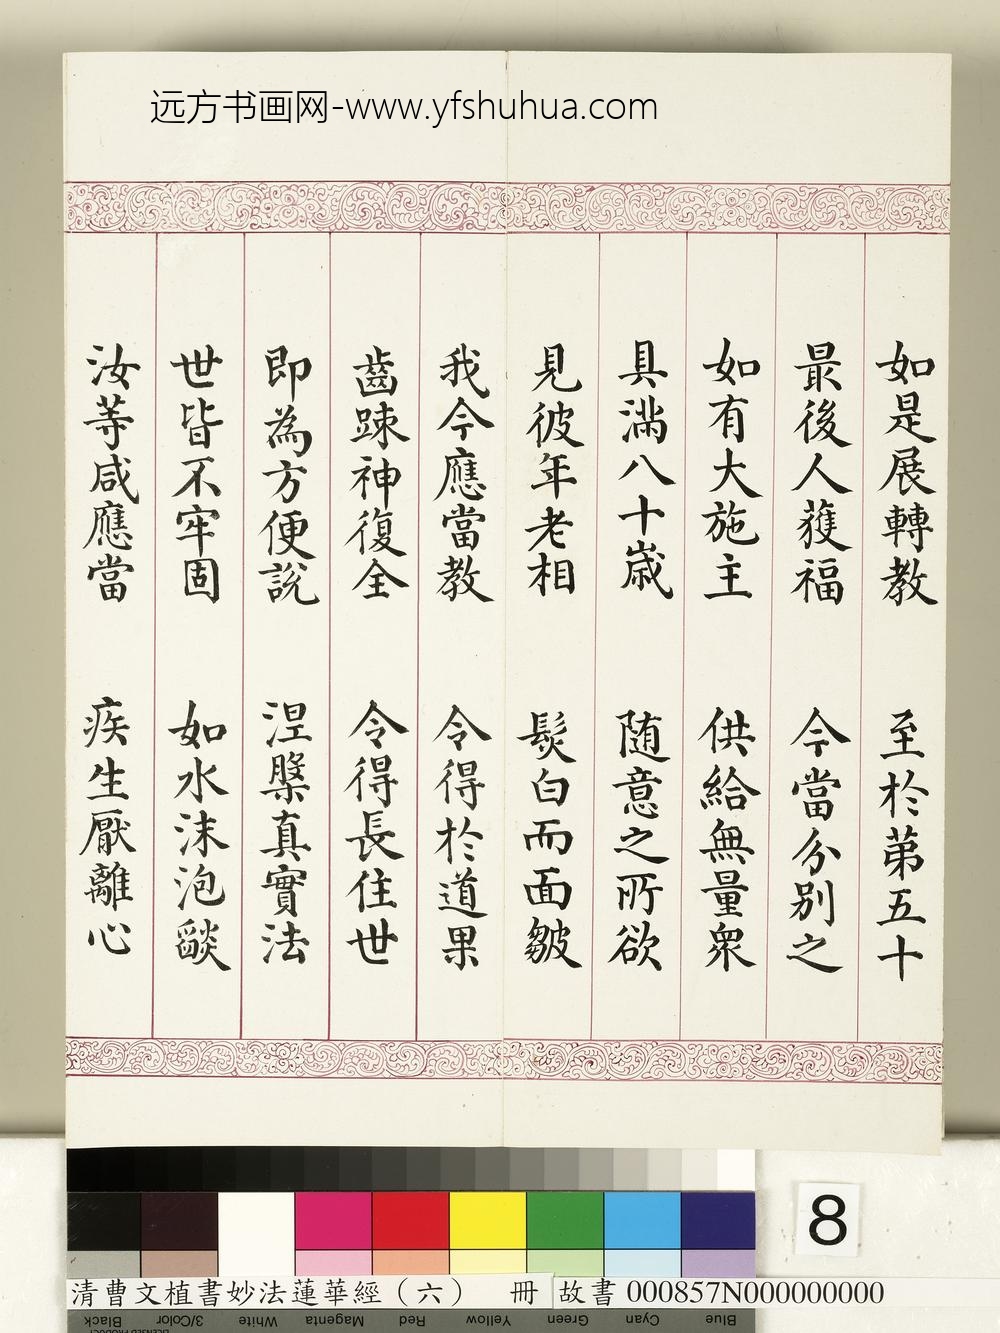 远方书画网-www.yfshuhua.com
如是展轉教 至於苐五十
最後人獲福 今當分别之
如有大施主 供給無量衆
具滿八十歲 随意之所欲
見彼年老相 髮白而面皺
我今應當教 令得於道果
齒踈神復全 令得長住世
即為方便說 涅槃真實法
世皆不牢固 如水沫泡燄
汝等咸應當 疾生厭離心
8
清曹文植書妙法蓮華經（六） 冊 故書 000857N000000000
Black 3/Color White Magenta Red Yellow Green Cyan Blue